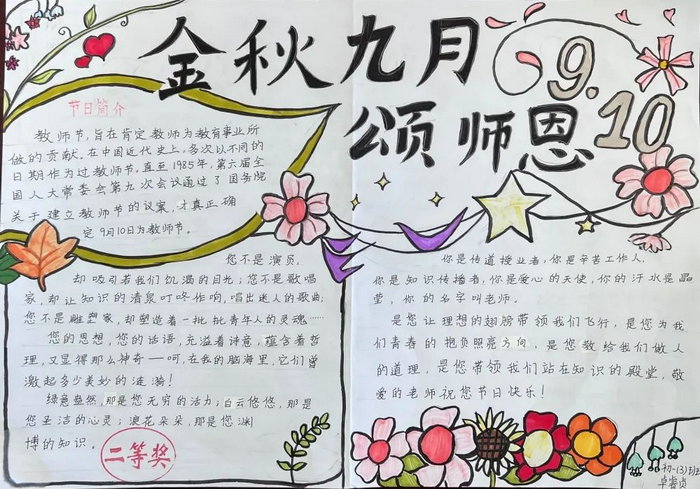 金秋九月
颂师恩
9.10
节日简介
教师节，旨在肯定教师为教育事业所
做的贡献。在中国近代史上，多次以不同的
日期作为过教师节，直至1985年，第六届全
国人大常委会第九次会议通过了国务院
关于建立教师节的议案，才真正确
定9月10日为教师节。
您不是演员，
却吸引着我们饥渴的目光；您不是歌唱
家，却让知识的清泉叮咚作响，唱出迷人的歌曲；
您不是雕塑家，却塑造着一批批青年人的灵魂……
您的思想，您的话语，充溢着诗意，蕴含着哲
理，又显得那么神奇——呵，在我的脑海里，它们曾
激起多少美妙的涟漪！
绿意盎然，那是您无穷的活力；白云悠悠，那是
您圣洁的心灵；浪花朵朵，那是您渊
博的知识。
二等奖
你是传道授业者，你是辛苦工作人，
你是知识传播者，你是爱心的天使，你的汗水是晶
莹，你的名字叫老师。
是您让理想的翅膀带领我们飞行，是您为我
们青春的抱负照亮方向，是您教给我们做人
的道理，是您带领我们站在知识的殿堂，敬
爱的老师祝您节日快乐！
初一(3)班
卓睿贞